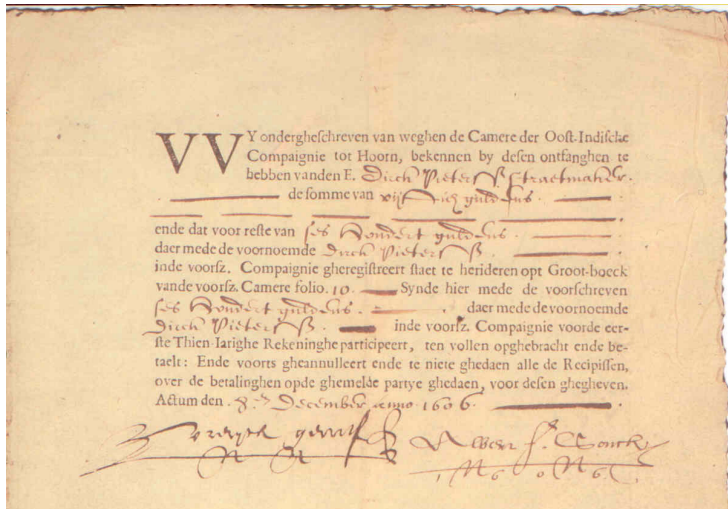 VVY ondergheschreven van weghen de Camere der Oost-Indische
Compaignie tot Hoorn, bekennen by desen ontfanghen te
hebben vanden E. Dirck Pieterß. Straetmaker.
de somme van guldens
ende dat voor reste van ses hondert guldens
daer mede de voornoemde Dirck Pieterß
inde voorsz. Compaignie gheregistreert staet te herideren opt Groot-boeck
vande voorsz. Camere folio. 10. Synde hier mede de voorschreven
ses hondert guldens. daer mede de voornoemde
Dirck Pieterß inde voorsz. Compaignie voorde eer-
ste Thien-Iarighe Rekeninghe participeert, ten vollen opghebracht ende be-
taelt: Ende voorts gheannulleert ende te niete ghedaen alle de Recipissen,
over de betalinghen opde ghemelde partye ghedaen, voor desen ghegheven.
Actum den December anno 1606.
Sonck
1606